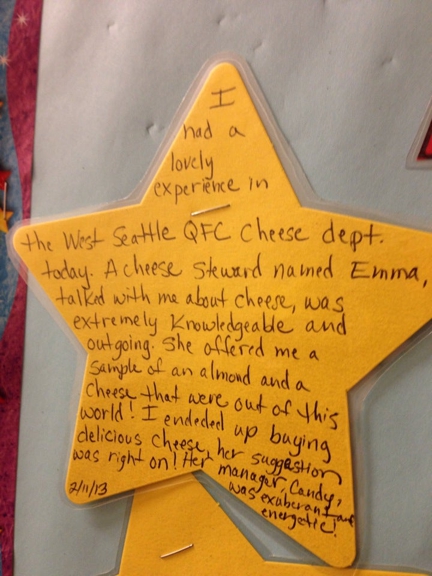 I
had a
lovely
experience in
the West Seattle QFC Cheese dept.
today. A cheese Steward named Emma,
talked with me about cheese, was
extremely Knowledgeable and
outgoing. She offered me a
sample of an almond and a
Cheese that were out of this
world! I endeded up buying
delicious cheese, her suggestion
was right on! Her manager, Candy,
was exuberant and
energetic!
2/11/13